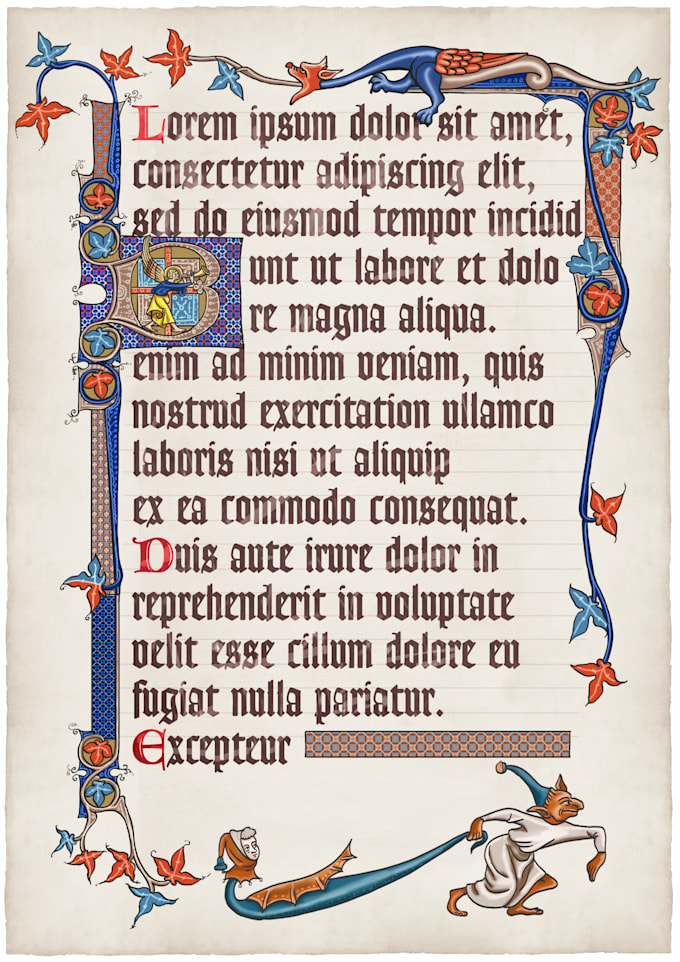 Lorem ipsum dolor sit amet,
consectetur adipiscing elit,
sed do eiusmod tempor incidid
B unt ut labore et dolo
re magna aliqua.
enim ad minim veniam, quis
nostrud exercitation ullamco
laboris nisi ut aliquip
ex ea commodo consequat.
Duis aute irure dolor in
reprehenderit in voluptate
velit esse cillum dolore eu
fugiat nulla pariatur.
Excepteur